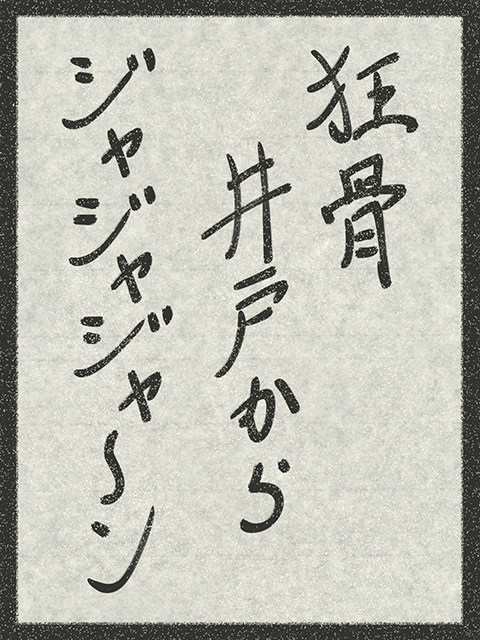 狂骨
井戸から
ジャジャジャ〜ン